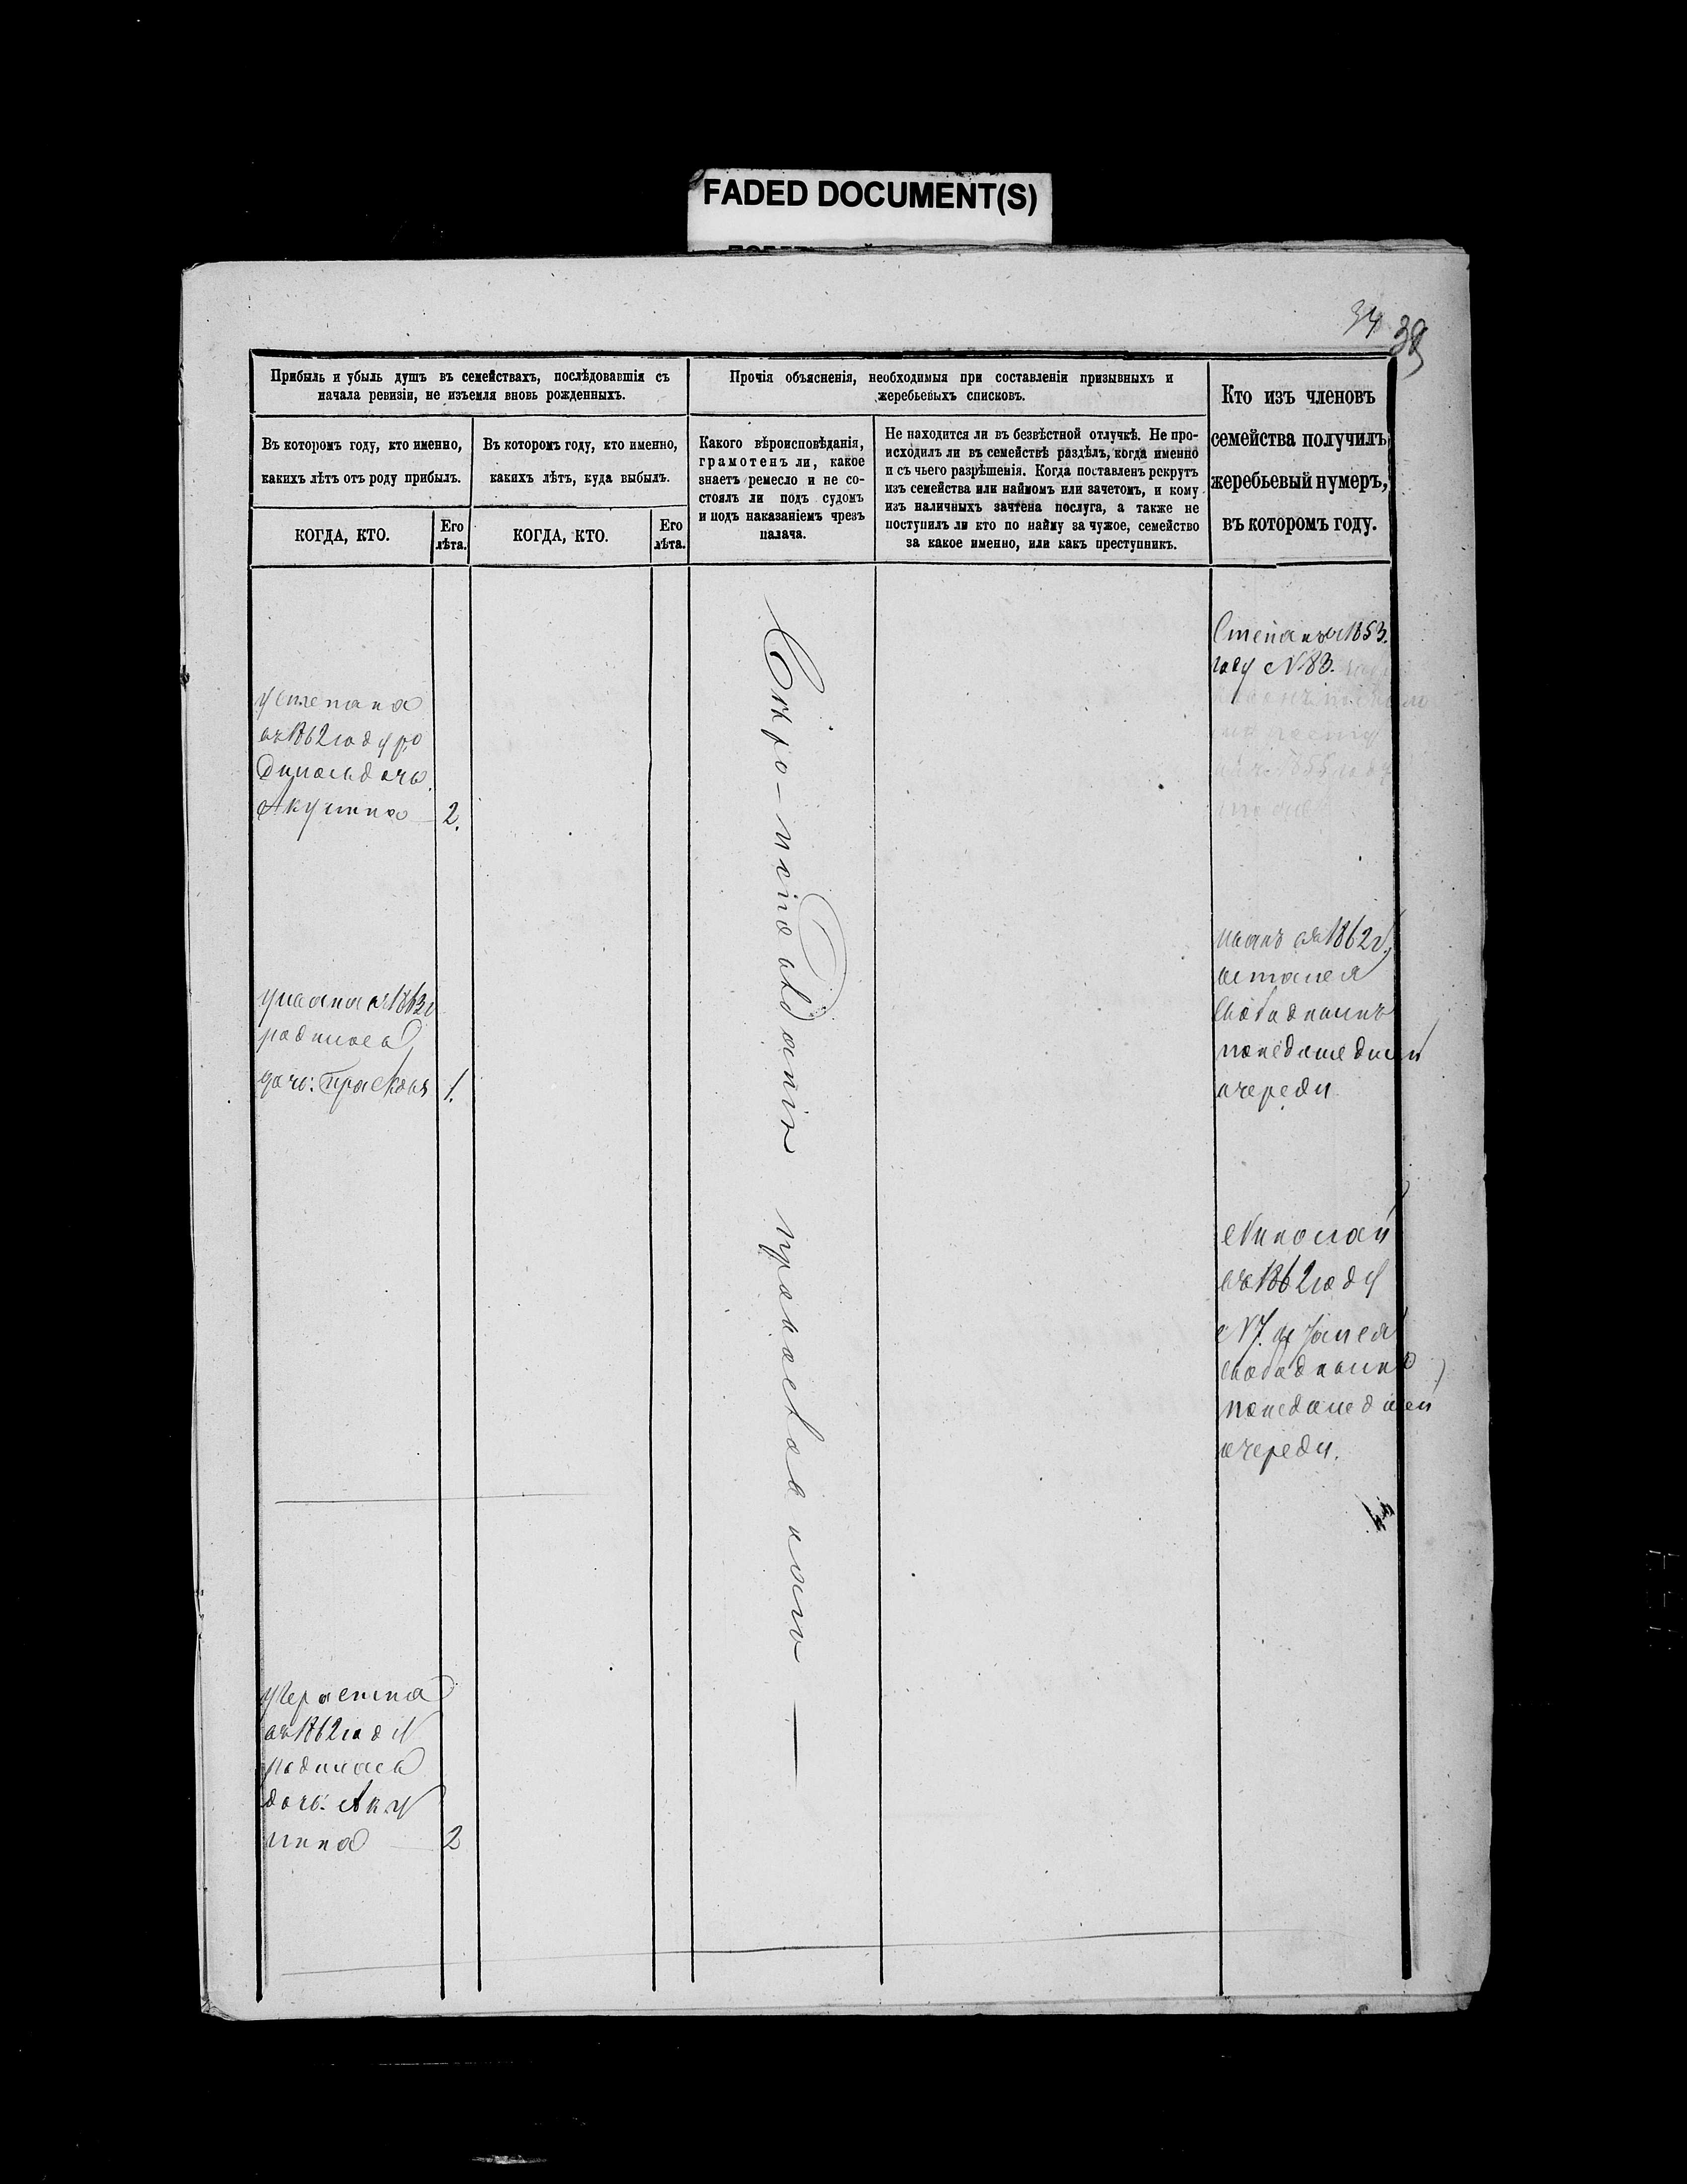 FADED DOCUMENT(S)
34 39
Прибыль и убыль душъ въ семействахъ, послѣдовавшія съ
начала ревизіи, не изъемля вновь рожденныхъ.
Въ которомъ году, кто именно,
какихъ лѣтъ отъ роду прибылъ.
КОГДА, КТО.
Его
лѣта.
Въ которомъ году, кто именно,
какихъ лѣтъ, куда выбылъ.
КОГДА, КТО.
Его
лѣта.
Прочія объясненія, необходимыя при составленіи призывныхъ и
жеребьевыхъ списковъ.
Какого вѣроисповѣданія,
грамотенъ ли, какое
знаетъ ремесло и не со-
стоялъ ли подъ судомъ
и подъ наказаніемъ чрезъ
палача.
Не находится ли въ безвѣстной отлучкѣ. Не про-
исходилъ ли въ семействѣ раздѣлъ, когда именно
и съ чьего разрѣшенія. Когда поставленъ рекрутъ
изъ семейства или наймомъ или зачетомъ, и кому
изъ наличныхъ зачтена послуга, а также не
поступилъ ли кто по найму за чужое, семейство
за какое именно, или какъ преступникъ.
Кто изъ членовъ
семейства получилъ
жеребьевый нумеръ,
въ которомъ году.
у степана
въ 1862 году ро
дилась дочь
Акулина 2.
у ивана въ 1863 г
родилась
дочь: Прасковья 1.
у Герасима
въ 1862 году
родилась
дочь: Аку
лина 2
Вѣро-исповѣданія православнаго
Степанъ въ 1853.
году № 83.
иванъ въ 1862 г.
остался
свободнымъ
понедошедшей
очереди
Николай
въ 1862 году
№ 7. остался
свободнымъ
понедошедшей
очереди.